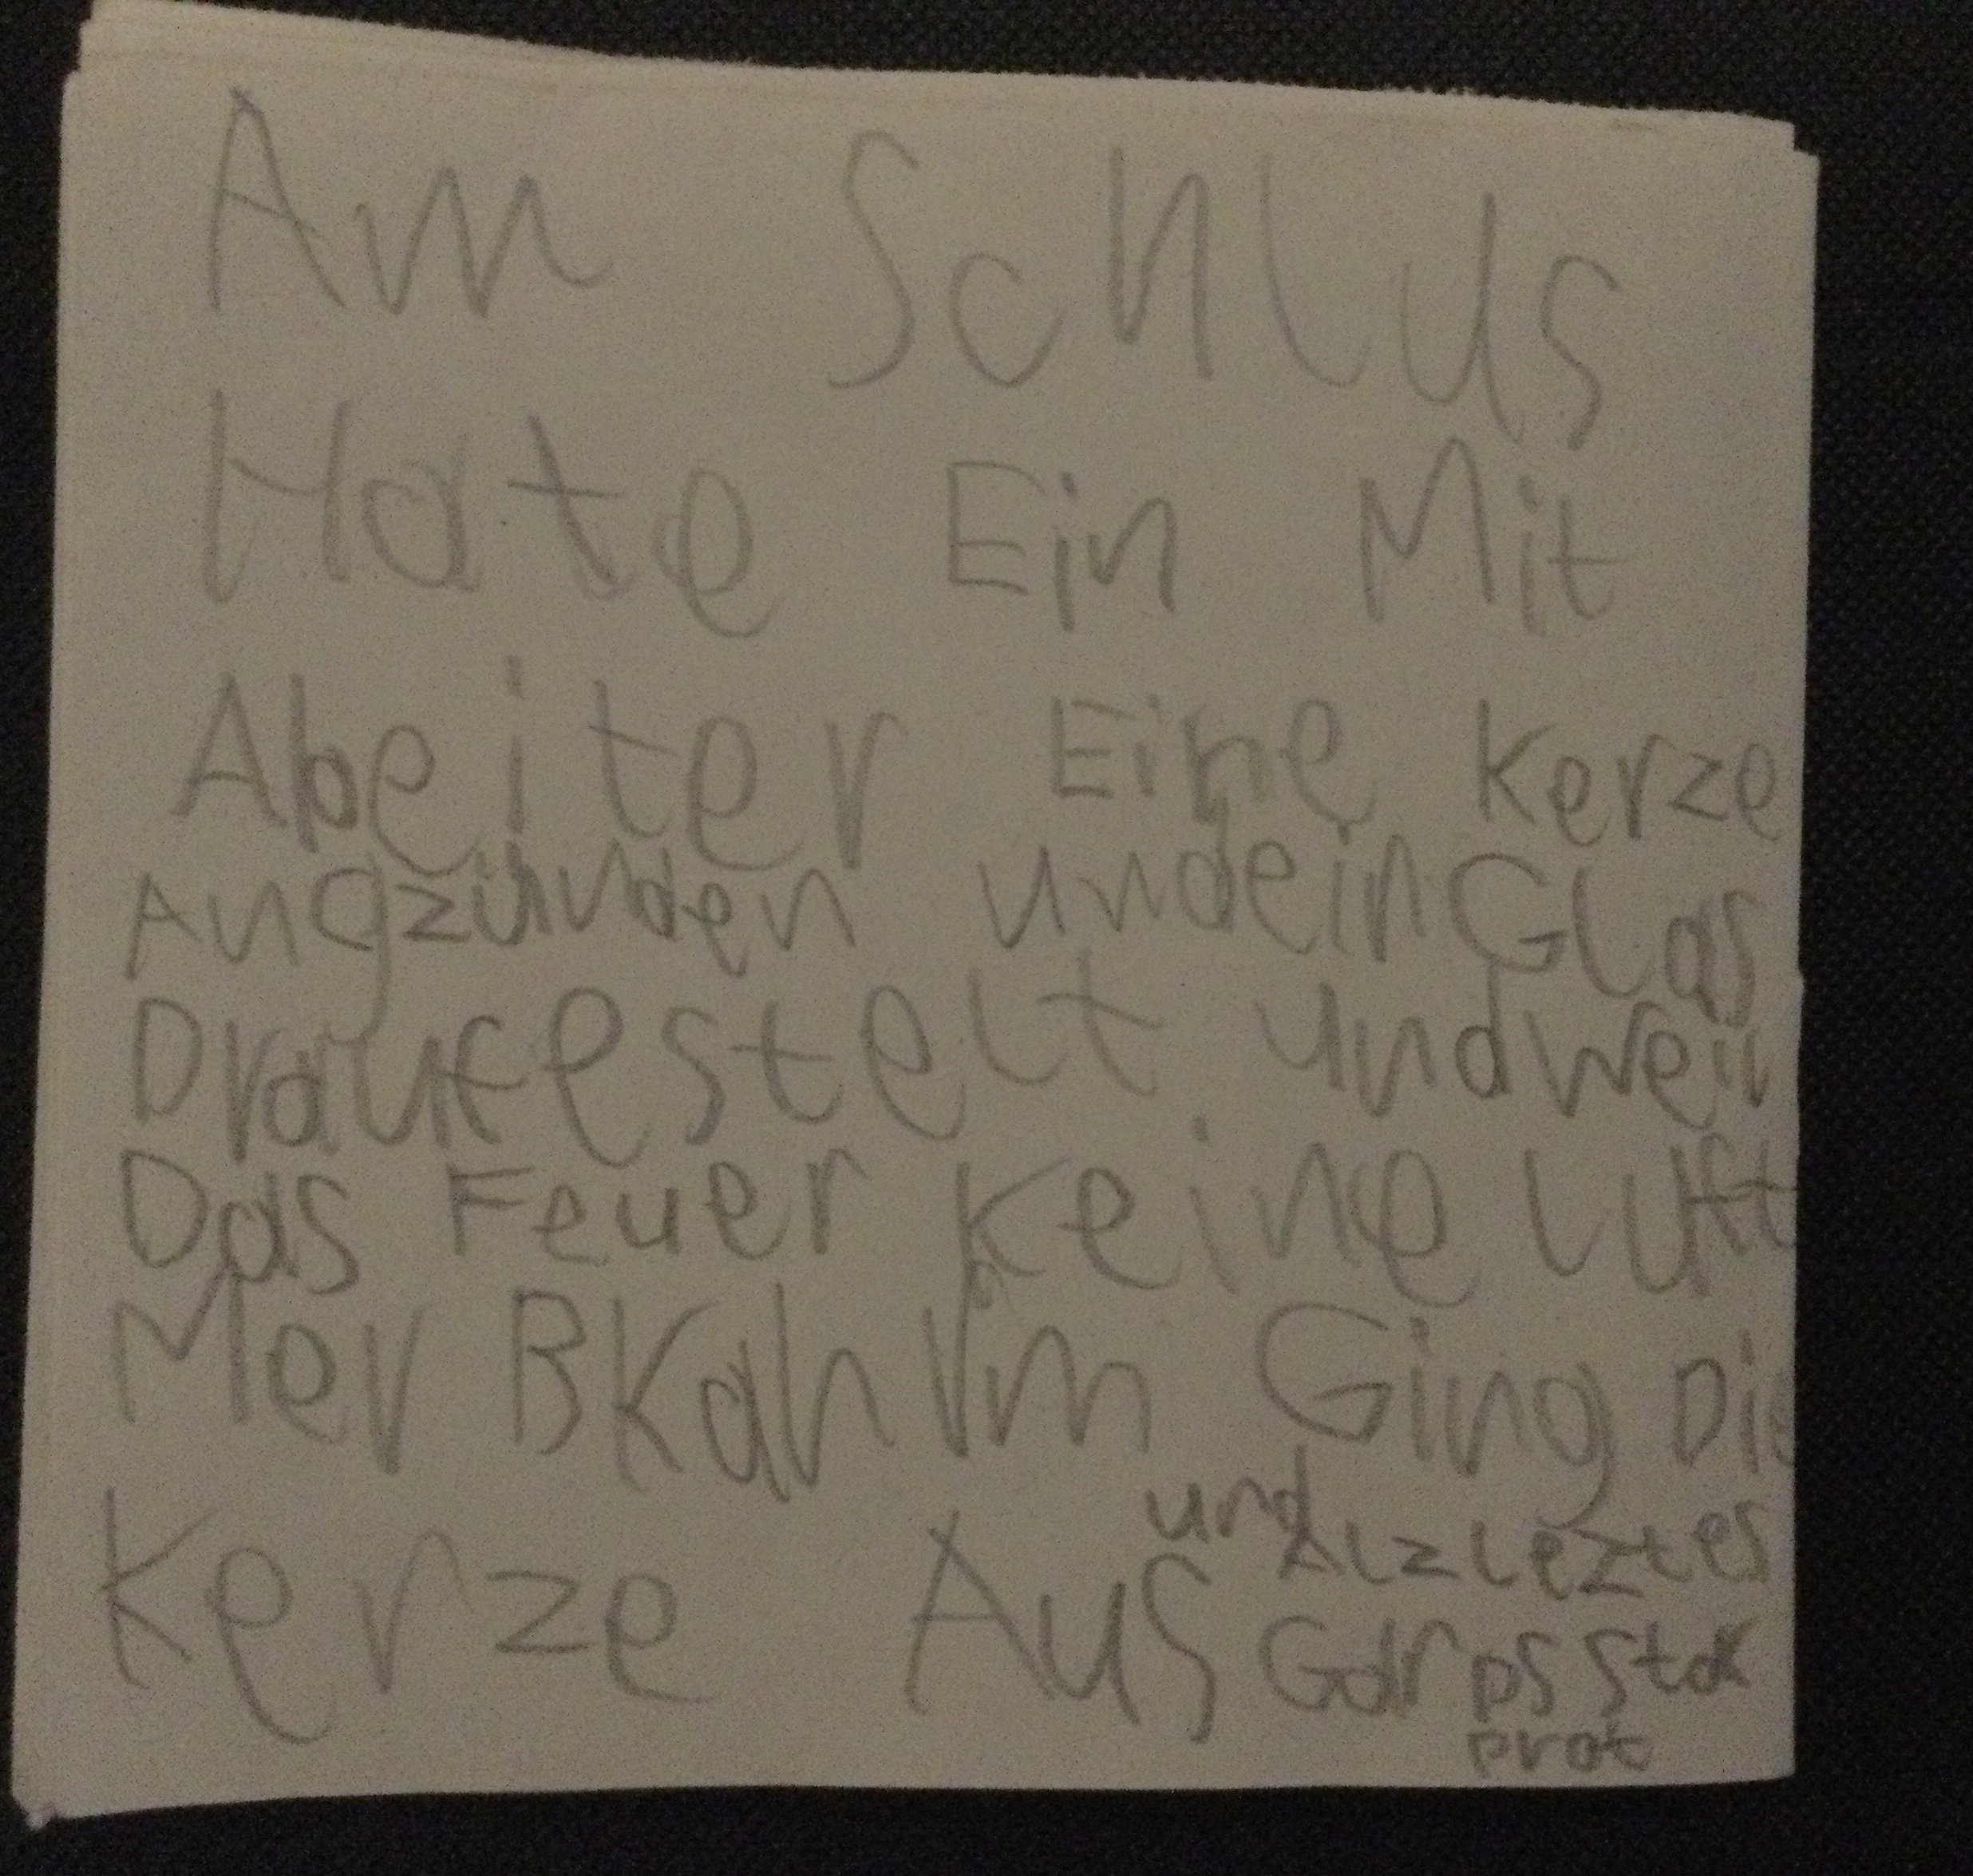 Am Schlus
Hate Ein Mit
Abeiter Eine Kerze
Angzünden undein Glas
Draufestelt und weil
Das Feuer Keine Luft
Mer BKahm Ging Die
Kerze Aus
und Alz Leztes
Gab ps Stok
prot